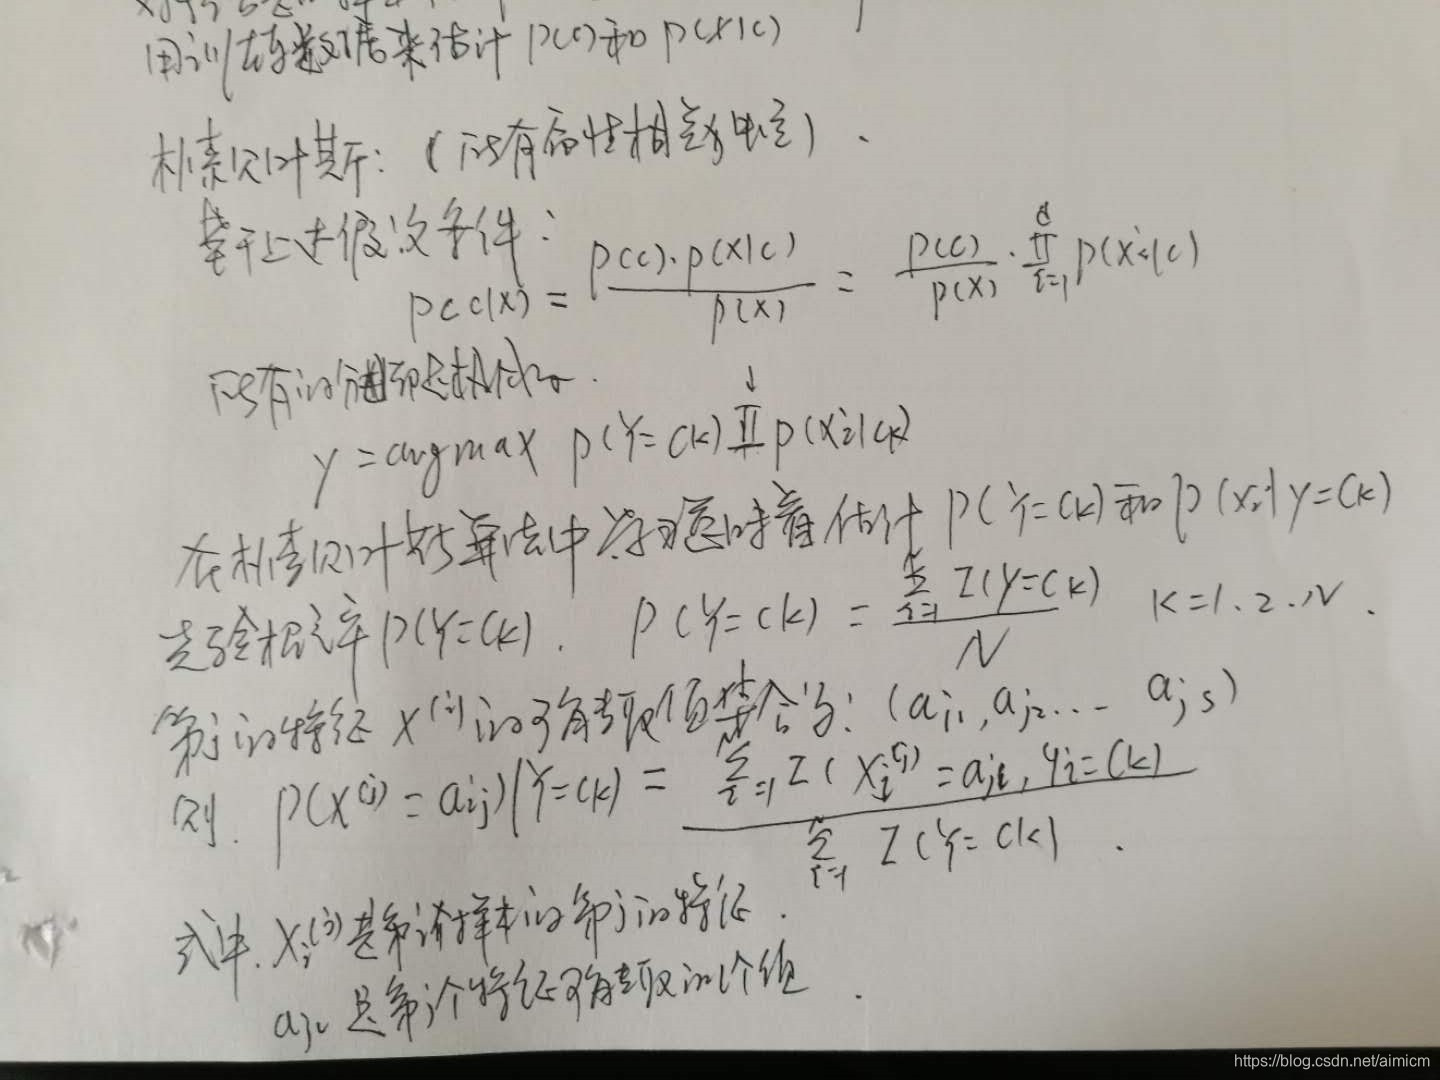 用训练数据来估计 P(c)和 P(X|c)
朴素贝叶斯:(所有属性相互独立).
基于上述假设条件:
P(c|X) = P(c)·P(X|c) / P(X) = P(c) / P(X) · ∏ᵢ₌₁ᵈ P(Xi|c)
所有的
y = argmax P(Y=Ck) ∏ P(Xi|Ck)
在朴素贝叶斯算法中学习意味着估计 P(Y=Ck)和P(Xi|Y=Ck)
先验概率P(Y=Ck). P(Y=Ck) = ∑ᵢ₌₁ᴺ I(Y=Ck) / N K=1.2..N.
第j的特征 X⁽ʲ⁾的可能取值集合为:(aj1,aj2... ajs)
则. P(X⁽ʲ⁾ = aij)|Y=Ck) = ∑ᵢ₌₁ᴺ I(Xi⁽ʲ⁾=ajl,yi=Ck) / ∑ᵢ₌₁ᴺ I(Y=Ck).
式中.Xi⁽ʲ⁾是第i样本的第j的特征.
ajl 是第j个特征可能取的l个值.
https://blog.csdn.net/aimicm